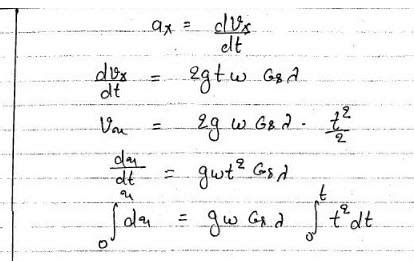 aₓ = dVₓ/dt
dVₓ/dt = 2gtω Cosλ
Vₓ = 2g ω Cosλ · t²/2
dx/dt = gωt² Cosλ
∫₀ˣ dx = gω Cosλ ∫₀ᵗ t² dt